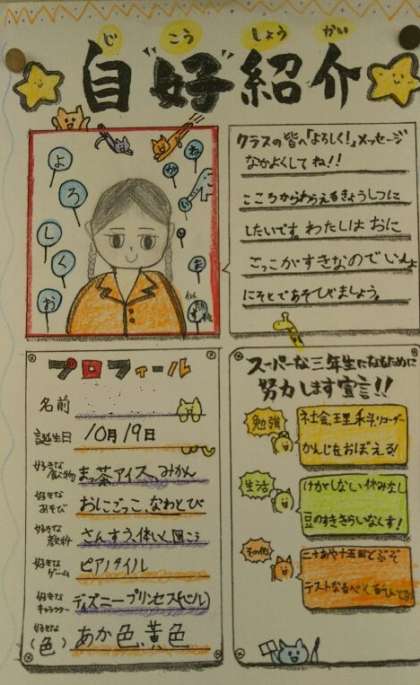 じ こう しょう かい
自"好"紹介
よろしくお
ね
ま
クラスの皆へ「よろしく!」メッセージ
なかよくしてね!!
こころからわらえるきょうしつに
したいです。わたしはおに
ごっこがすきなのでいっしょ
にそとであそびましょう。
プロフィール
名前
誕生日 10月19日
好きな食べ物 まっ茶アイス、みかん
好きなあそび おにごっこ、なわとび
好きな教科 さんすう、体いく、図こう
好きなゲーム ピアノタイル
好きなキャラクター ディズニープリンセス(ベル)
好きな(色) あか色、黄色
スーパーな三年生になるために
努力します宣言!!
勉強
社会、理科、リコーダー
かんじをおぼえる!
生活
けがしない 休みなし
豆のすききらいなくす!
その他
二十あや十五回とぶぞ